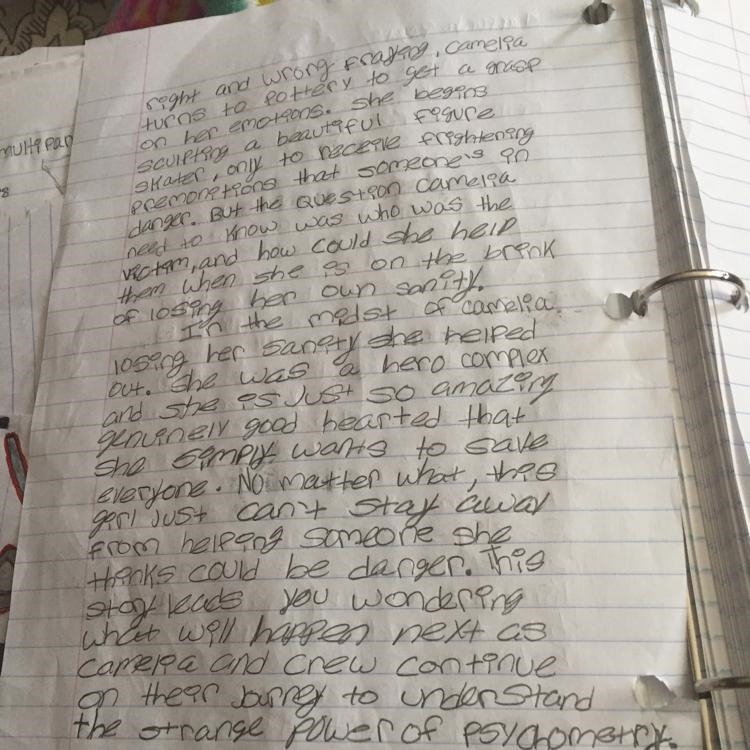 right and wrong fraying, Camelia
turns to Pottery to get a grasp
on her emotions. She begins
sculpting a beautiful figure
skater, only to receive frightening
premonitions that someone's in
danger. But the question Camelia
need to know was who was the
victim, and how could she help
them when she is on the brink
of losing her own sanity.
In the midst of camelia
losing her sanity she helped
out. She was a hero complex
and she is Just so amazing
genuinely good hearted that
she simply wants to save
everyone. No matter what, this
girl Just can't stay away
from helping someone she
thinks could be danger. This
stoy leads you wondering
what will happen next as
camelia and crew continue
on their Journey to understand
the strange Power of Psychometry.
multipan
s